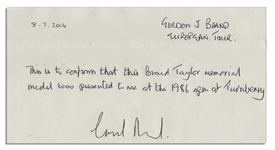 8.7.2014
GORDON J BRAND
EUROPEAN TOUR.
This is to confirm that this Braid Taylor memorial
medal was presented to me at the 1986 open at Turnberry